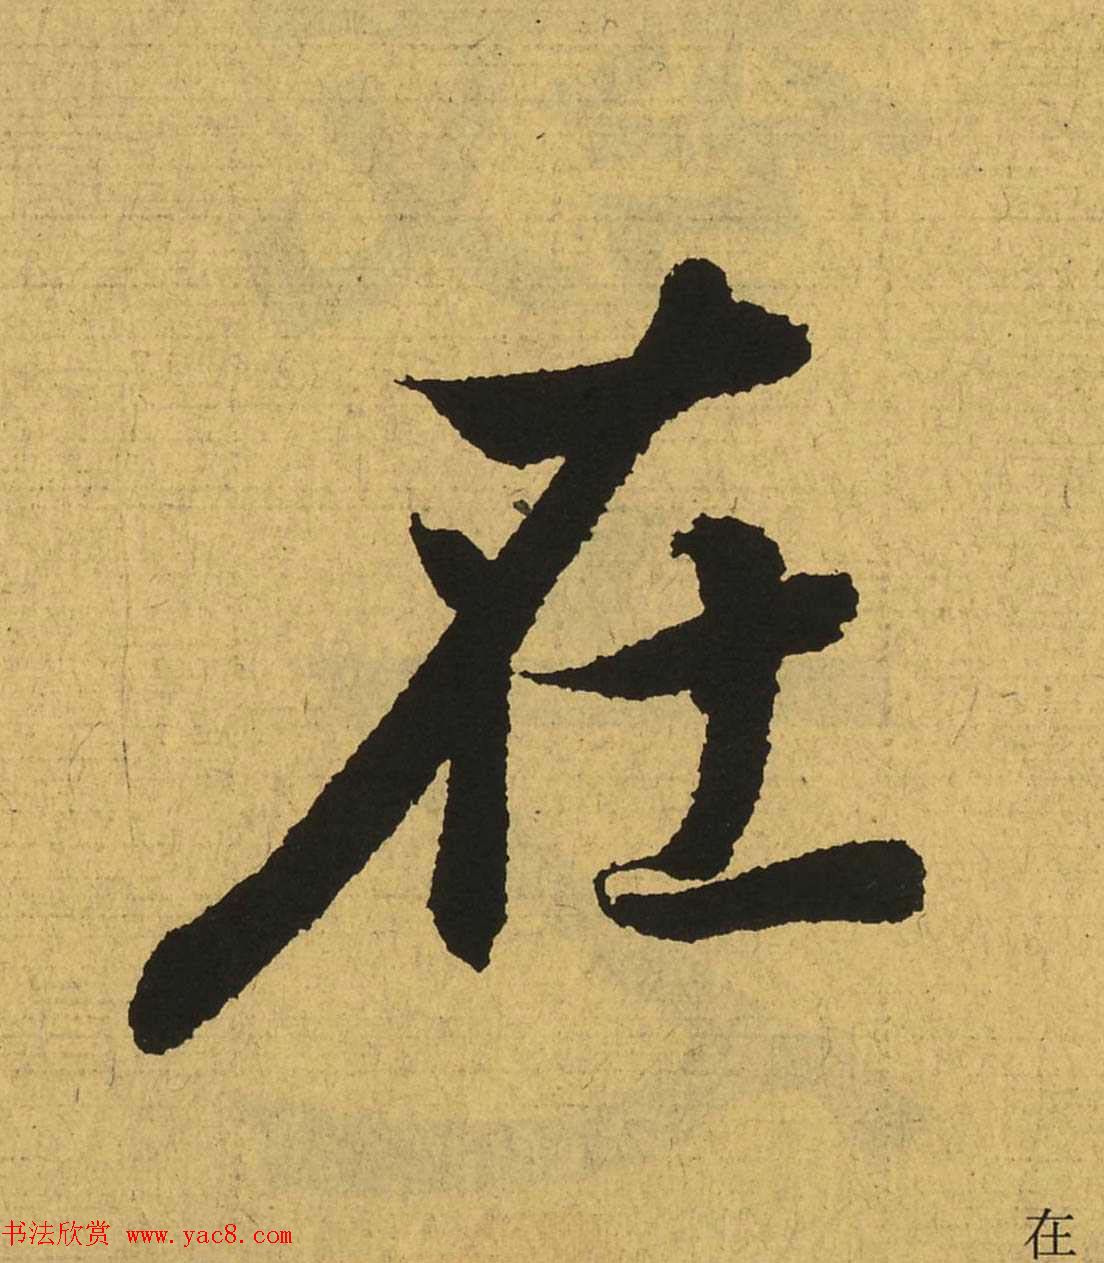 在
书法欣赏 www.yac8.com
在